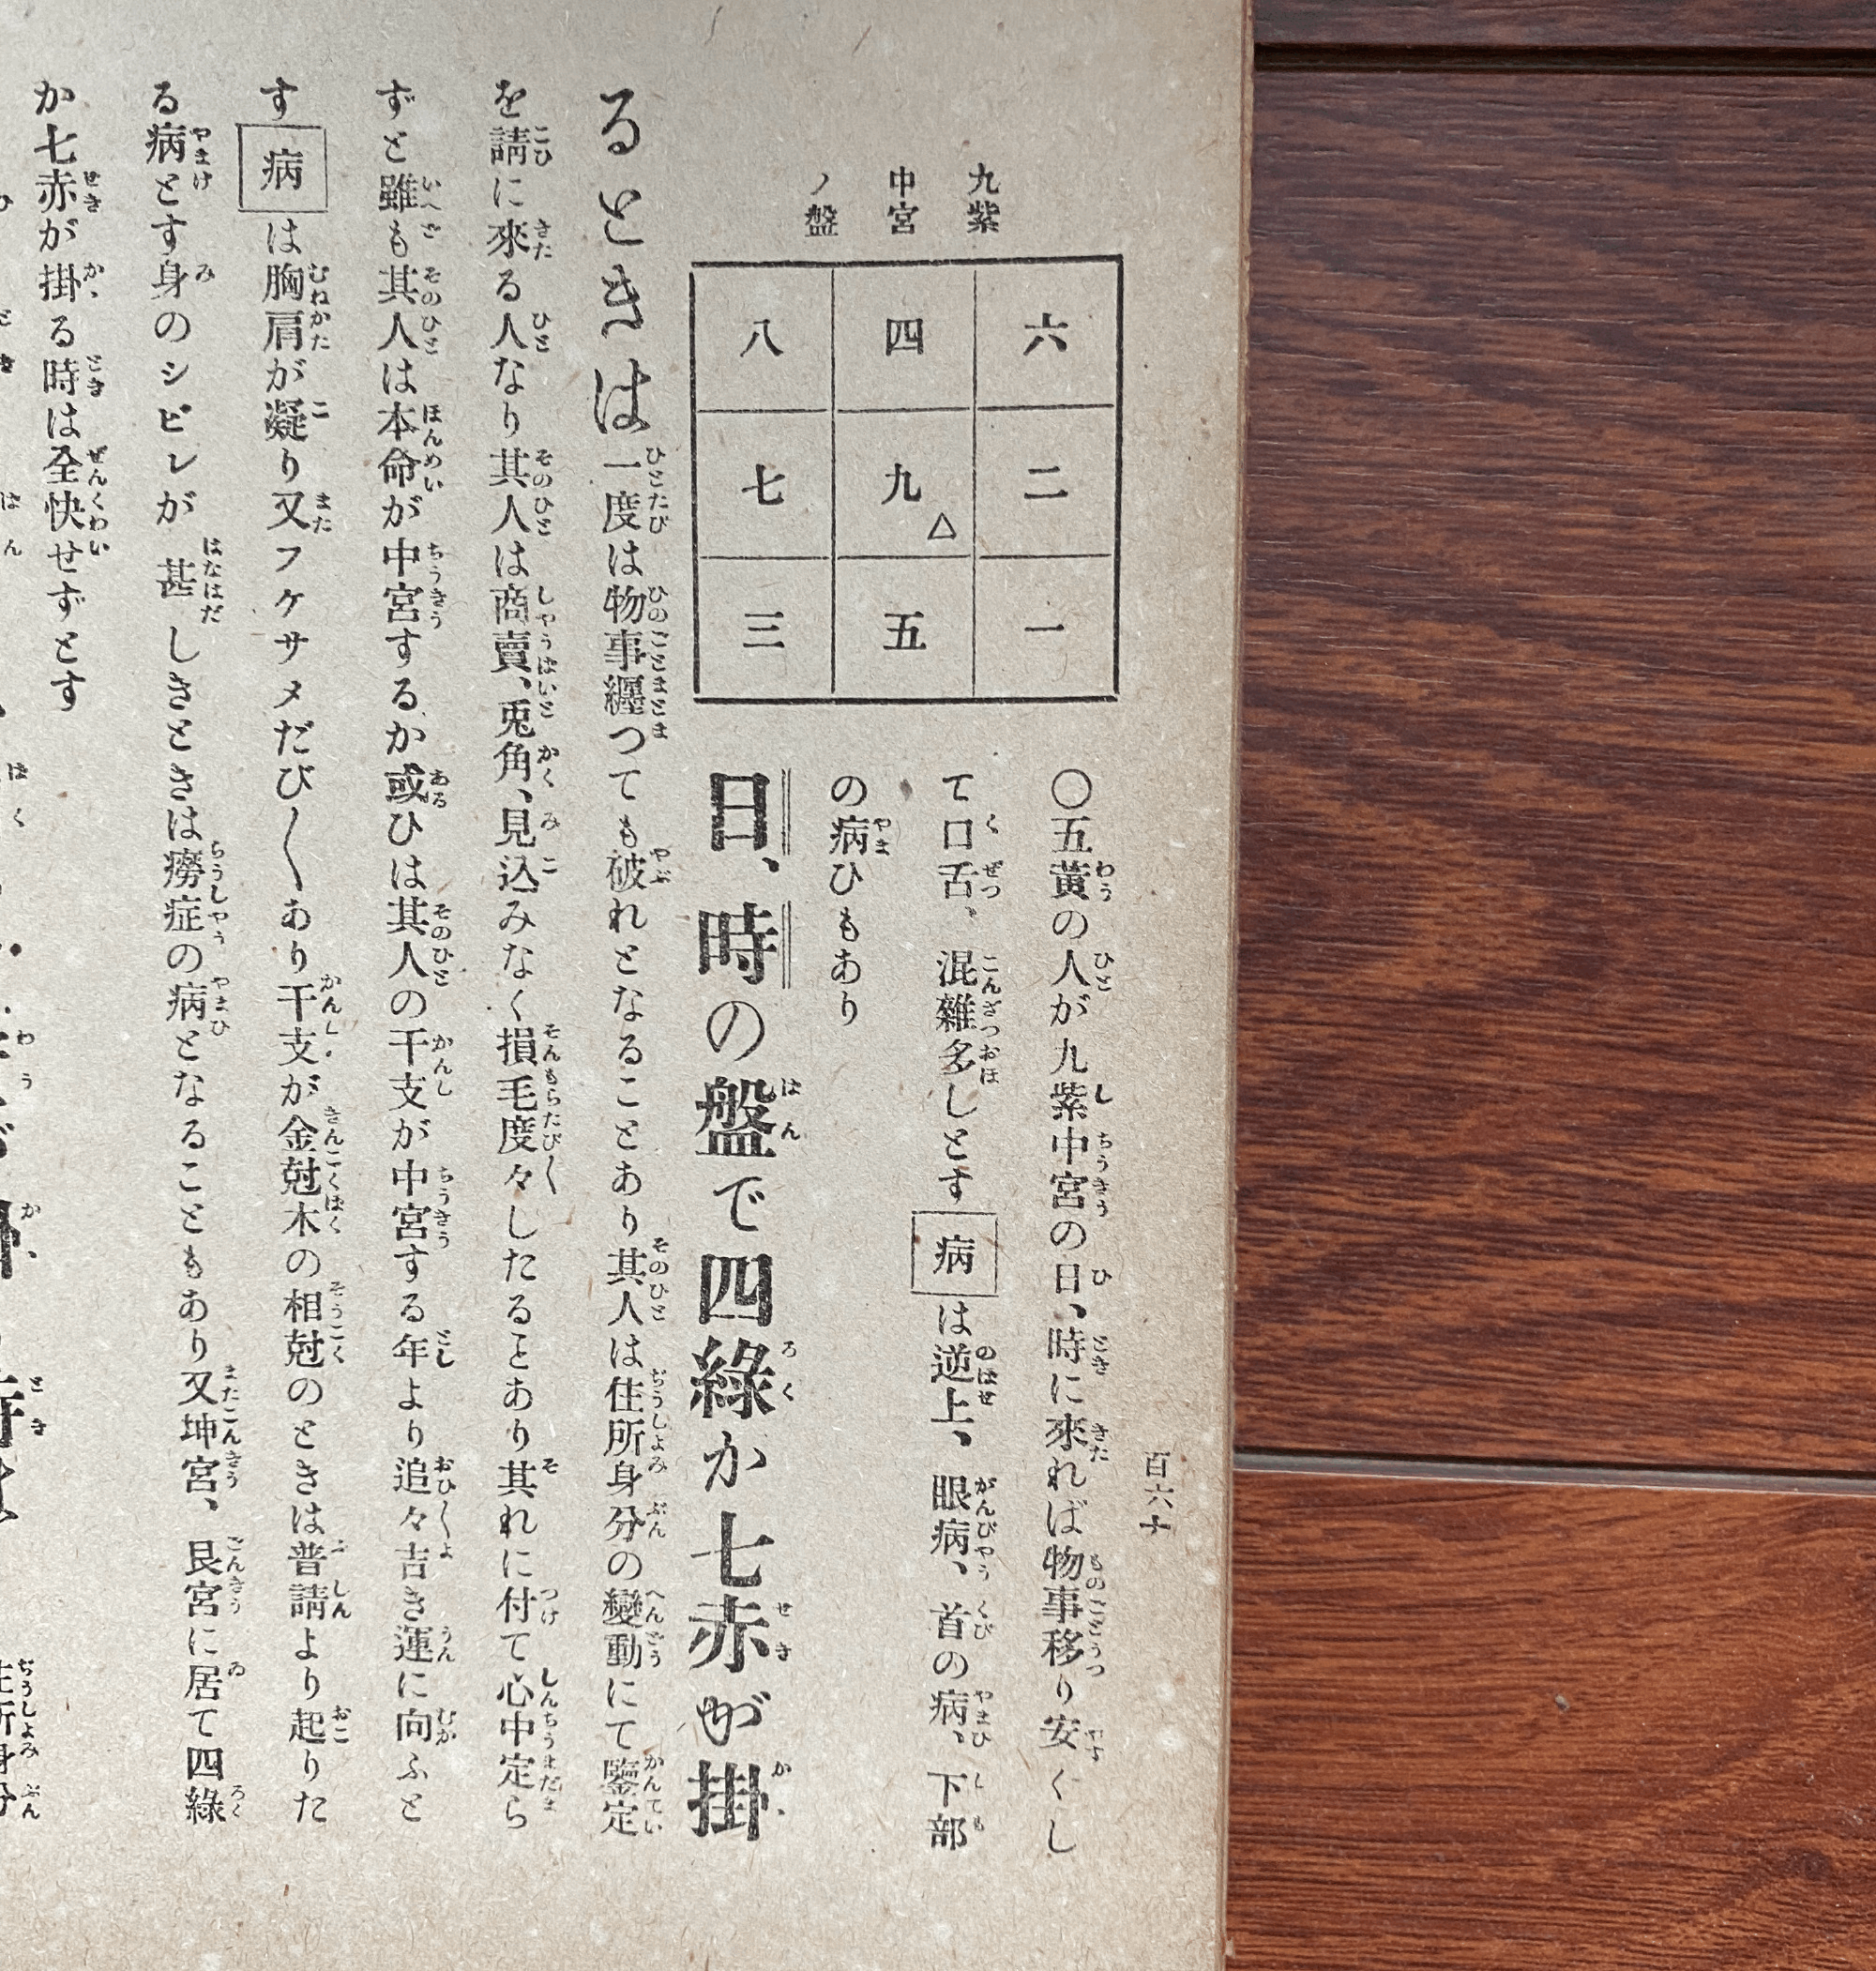 百六十
九紫
中宮
ノ盤
六 二 一
四 九 △ 五
八 七 三
〇五黃の人が九紫中宮の日、時に來れば物事移り安くし
て口舌、混雜多しとす 病 は逆上、眼病、首の病、下部
の病ひもあり
日、時の盤で四綠か七赤が掛
るときは一度は物事纒つても破れとなることあり其人は住所身分の變動にて鑒定
を請に來る人なり其人は商賣、兎角、見込みなく損毛度々したるとあり其れに付て心中定ら
ずと雖も其人は本命が中宮するか或ひは其人の干支が中宮する年より追々吉き運に向ふと
す 病 は胸肩が凝り又フケサメだび〱あり干支が金尅木の相尅のときは普請より起りた
る病とす身のシビレが甚しきときは癆症の病となることもあり又坤宮、艮宮に居て四綠
か七赤が掛る時は全快せずとす